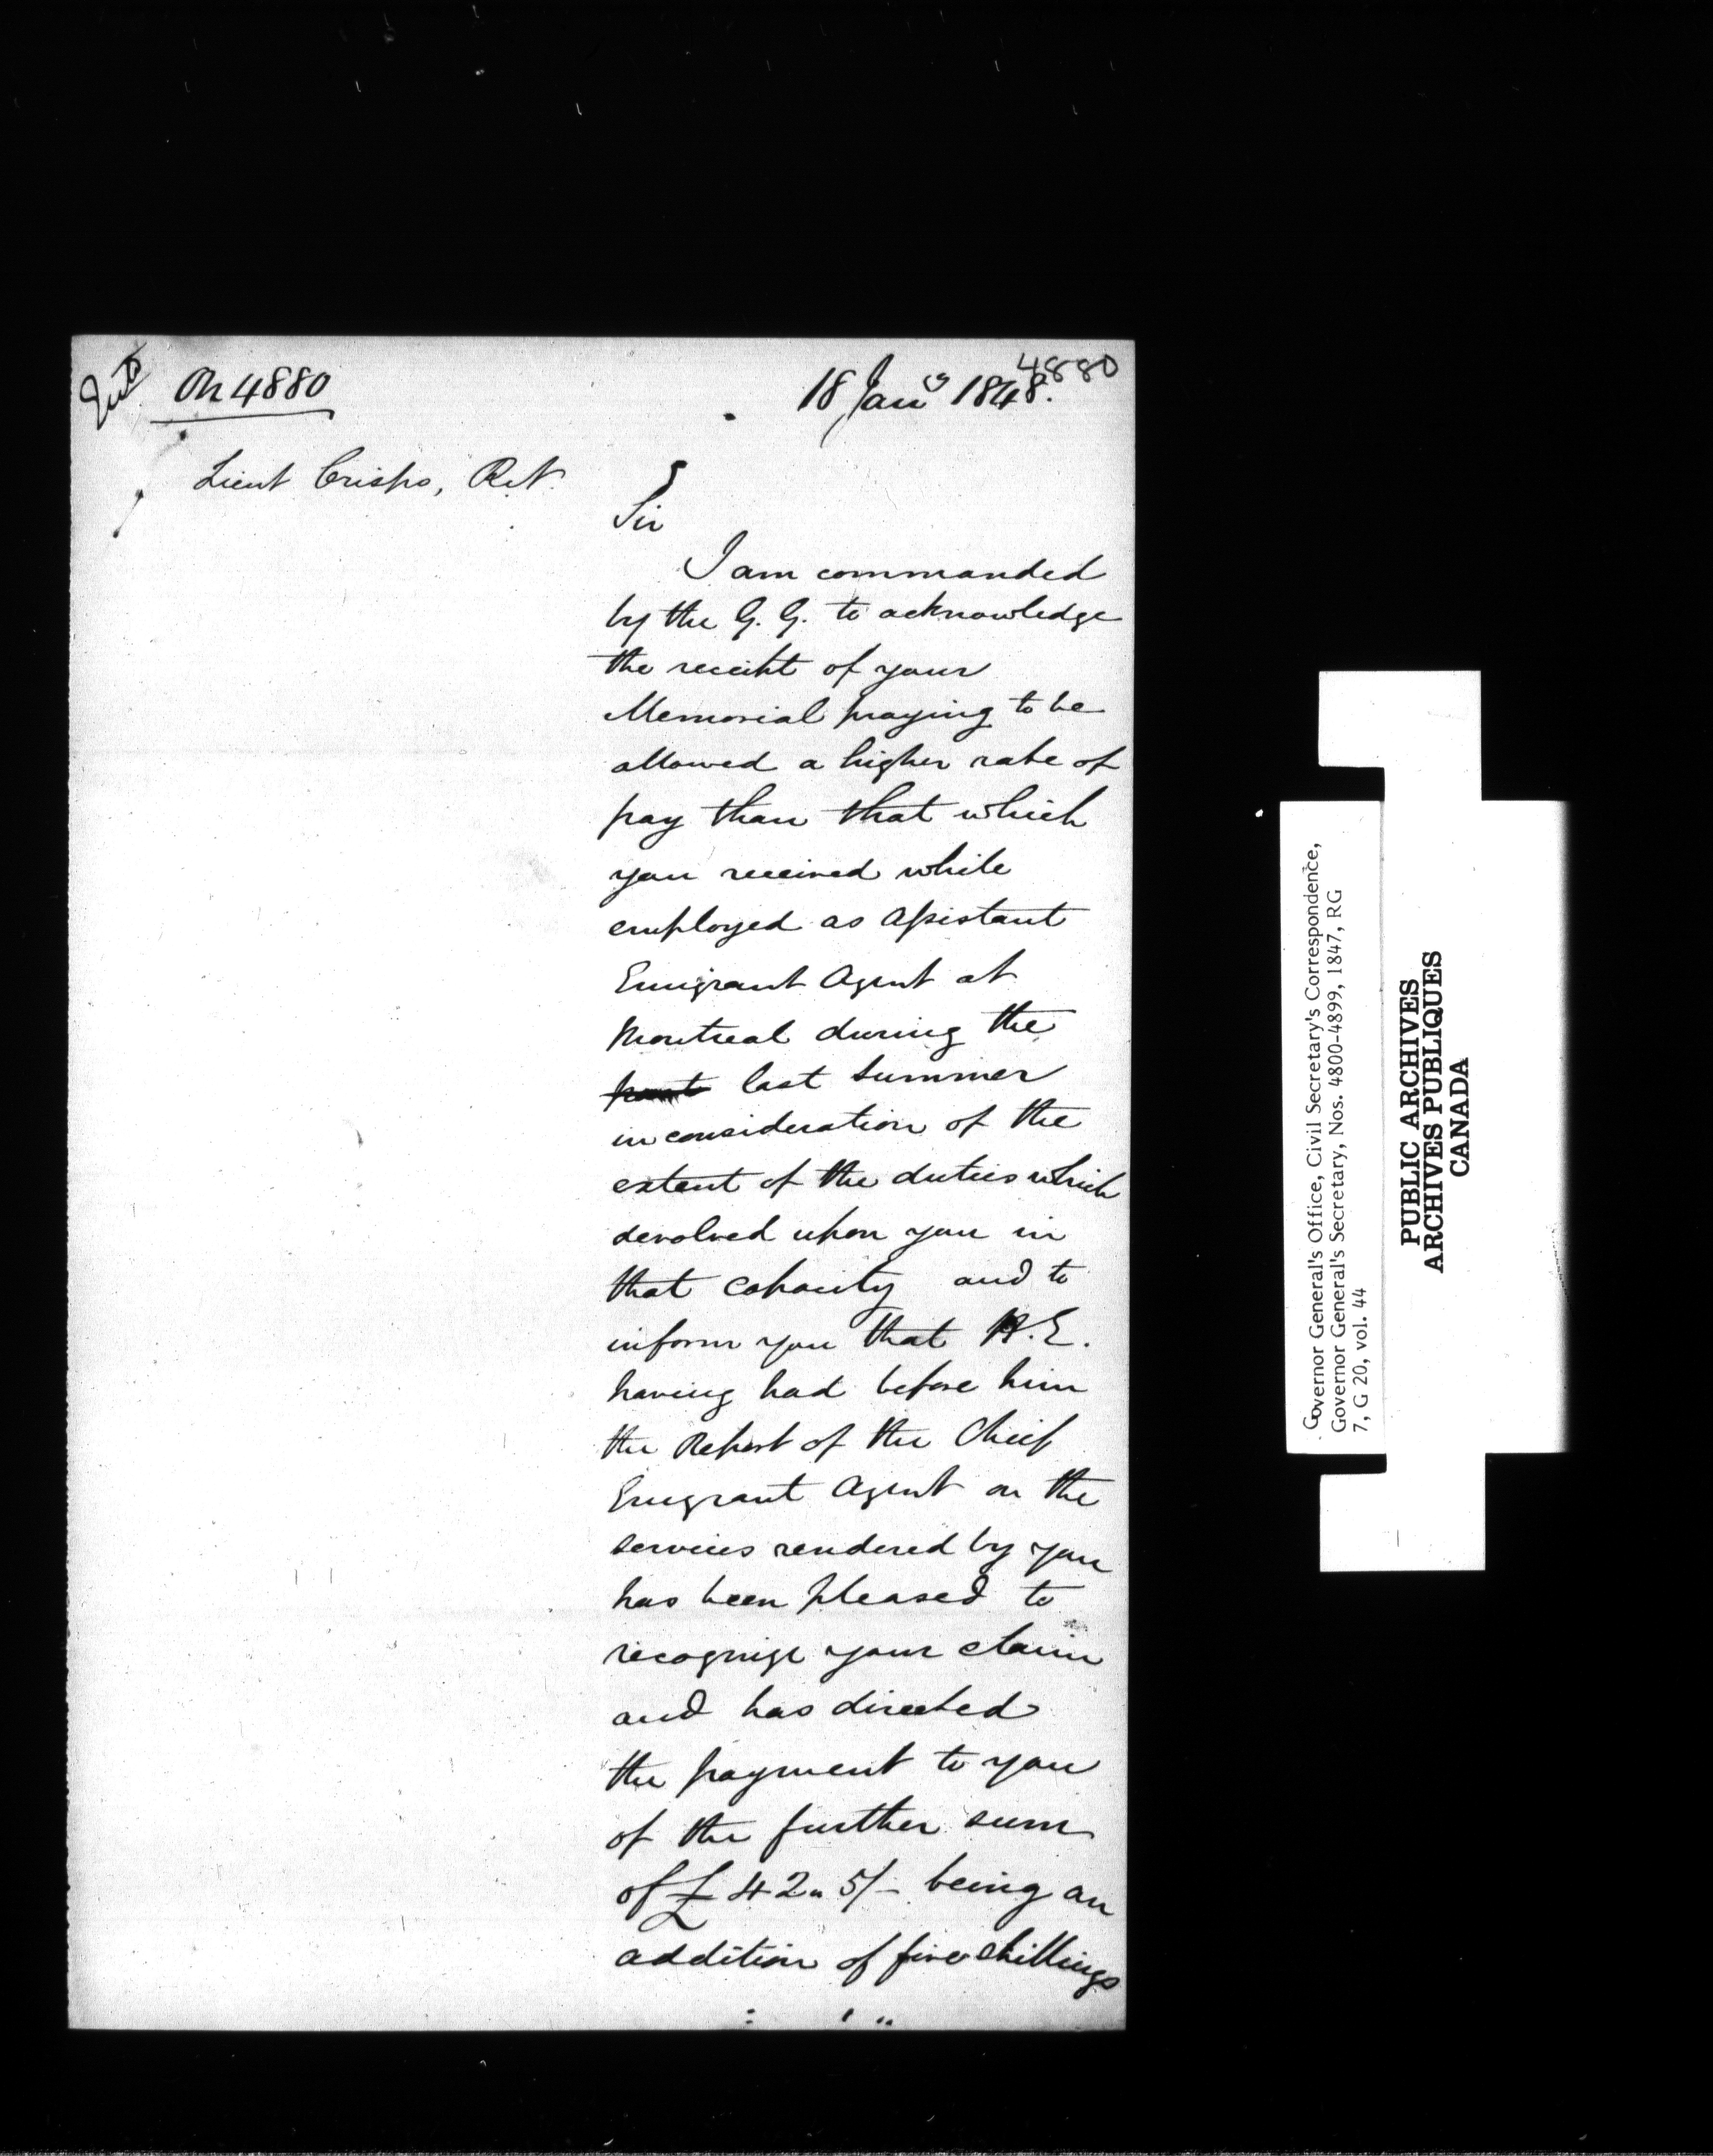 4880
On 4880
18 Jany 1848.
Lieut Crispo, R.N.
Sir
I am commanded
by the G. G. to acknowledge
the receipt of your
Memorial praying to be
allowed a higher rate of
pay than that which
you received while
employed as Assistant
Emigrant Agent at
Montreal during the
last summer
in consideration of the
extent of the duties which
devolved upon you in
that capacity and to
inform you that H.E.
having had before him
the Report of the Chief
Emigrant Agent on the
services rendered by you
has been pleased to
recognize your claim
and has directed
the payment to you
of the further sum
of £42 " 5/- being an
addition of five shillings
Governor General's Office, Civil Secretary's Correspondence,
Governor General's Secretary, Nos. 4800-4899, 1847, RG
7, G 20, vol. 44
PUBLIC ARCHIVES
ARCHIVES PUBLIQUES
CANADA